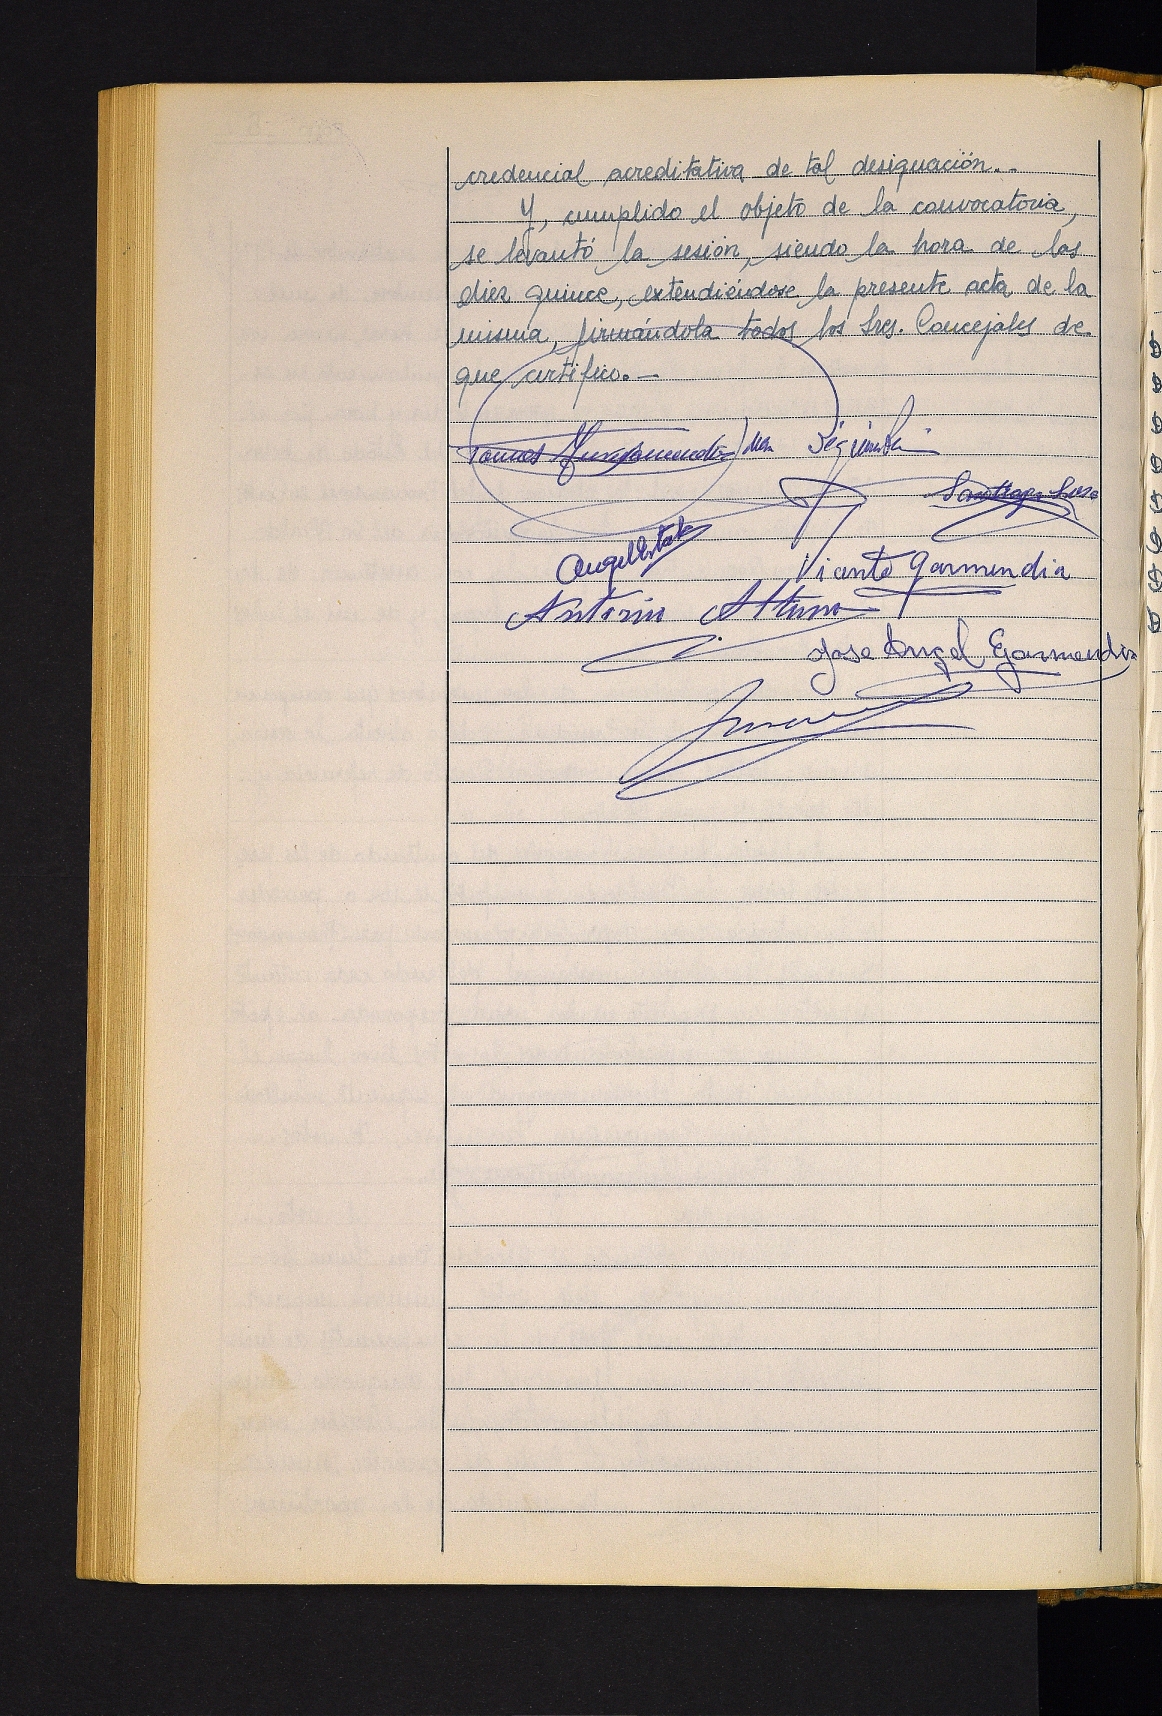 credencial acreditativa de tal designación..
Y, cumplido el objeto de la convocatoria,
se levantó la sesión, siendo la hora de las
diez quince, extendiéndose la presente acta de la
misma, firmándola todos los Sres. Concejales de
que certifico.—
Tomas
Santiago
Angel
Vicente Garmendia
Antonio Altuna
Jose Angel Garmendia